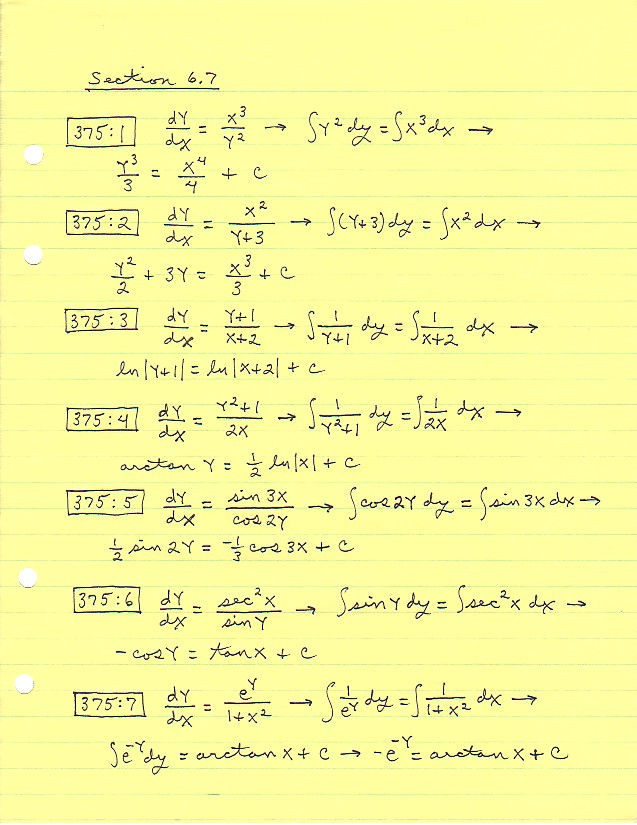 Section 6.7
375:1 dY/dX = X³/Y² → ∫Y² dy = ∫X³ dx →
Y³/3 = X⁴/4 + C
375:2 dY/dX = X²/(Y+3) → ∫(Y+3) dy = ∫X² dx →
Y²/2 + 3Y = X³/3 + C
375:3 dY/dX = (Y+1)/(X+2) → ∫ 1/(Y+1) dy = ∫ 1/(X+2) dx →
ln|Y+1| = ln|X+2| + C
375:4 dY/dX = (Y²+1)/(2X) → ∫ 1/(Y²+1) dy = ∫ 1/(2X) dx →
arctan Y = 1/2 ln|X| + C
375:5 dY/dX = sin 3X/cos 2Y → ∫cos 2Y dy = ∫sin 3X dx →
1/2 sin 2Y = -1/3 cos 3X + C
375:6 dY/dX = sec²X/sin Y → ∫sin Y dy = ∫sec²X dx →
-cos Y = tan X + C
375:7 dY/dX = e^Y/(1+X²) → ∫ 1/e^Y dy = ∫ 1/(1+X²) dx →
∫e^-Y dy = arctan X + C → -e^-Y = arctan X + C